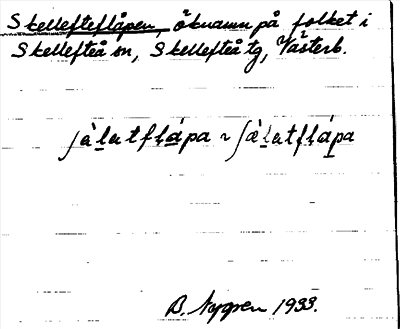 Skellefteflåpen, öknamn på folket i
Skellefteå sn, Skellefteå tg, Västerb.
ʃàlatflápa ~ ʃæ̀latflápa
B. Nygren 1933.